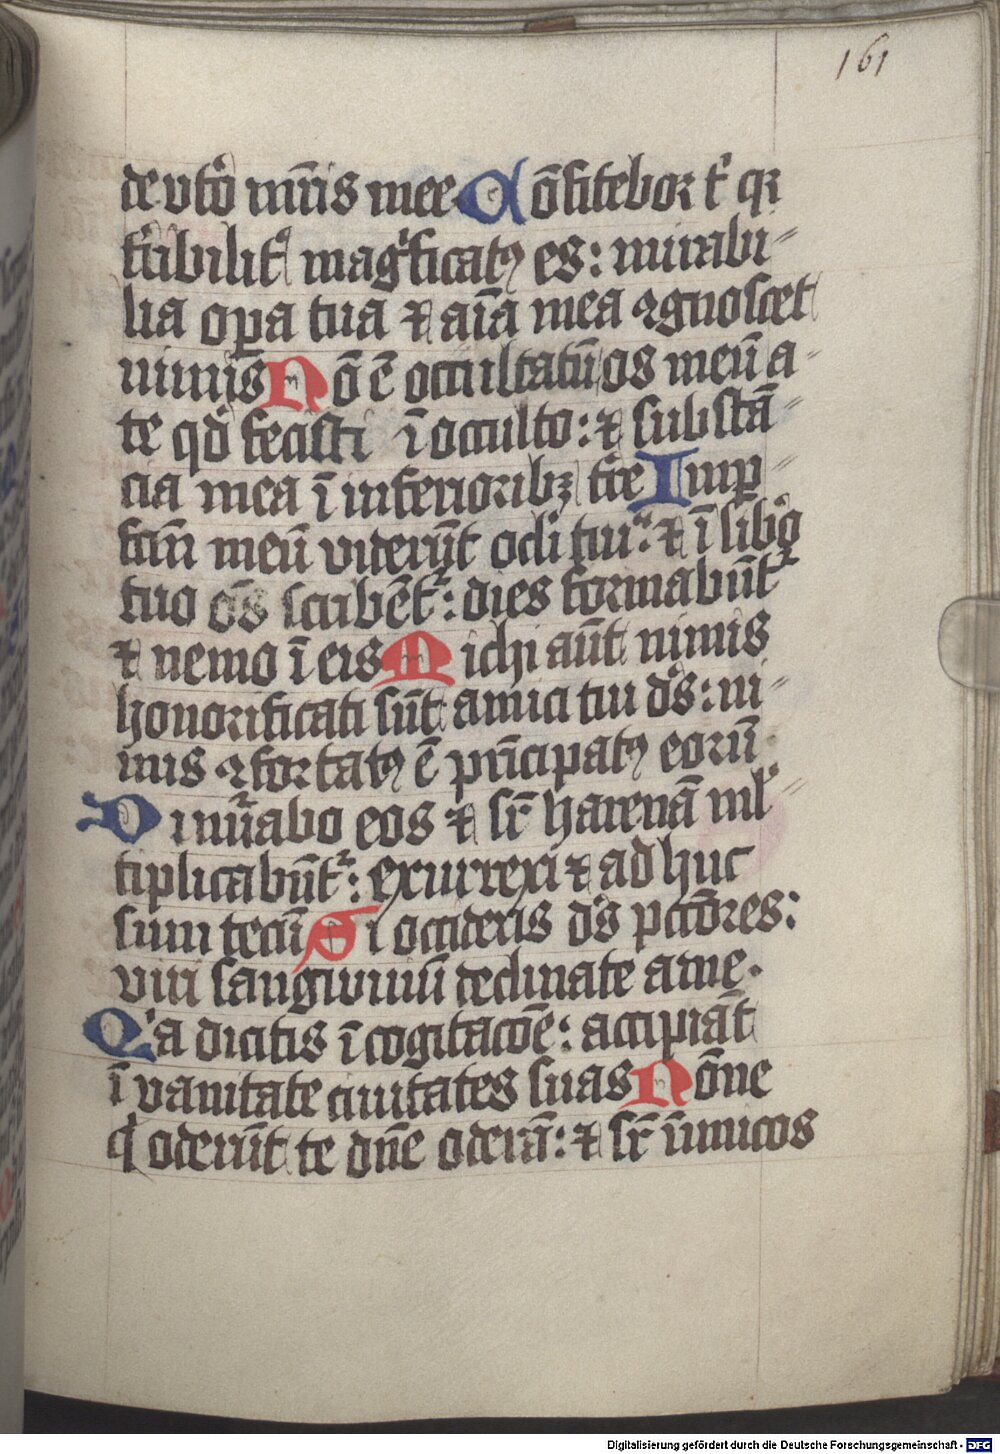 161
de vt̾o mr̄is mee Cōfitebor tⁱ qꝛ
tⁱribilit͛ magⁱficatꝰ es: mirabi
lia oꝑa tua ⁊ aīa mea ꝯgnoscet
nimis Nō ē occultatū os meū a
te qd̄ fecisti ī occulto: ⁊ substā
cia mea ī inferioribꝫ tr̄e Imꝑ
fcm̄ meū viderūt ocl̄i tui: ⁊ ī libͦ
tuo oēs scͥbēt᷑: dies formabūt᷑
⁊ nemo ī eis Michi aūt nimis
honorificati sūt amici tui ds̄: ni
mis ꝯfortatꝰ ē pⁱncipatꝰ eorū
Dinūabo eos ⁊ sr̄ harenā ml̄
tiplicabūt᷑: exurrexi ⁊ ad huc
sum tecū Si occideris ds̄ pccōres:
viri sangwinū declinate a me.
Qⁱa dicitis ī cogitacōe: accipiāt
ī vanitate ciuitates suas Nōne
qⁱ oderūt te dn̄e oderā: ⁊ sr̄ inīmicos
Digitalisierung gefördert durch die Deutsche Forschungsgemeinschaft - DFG